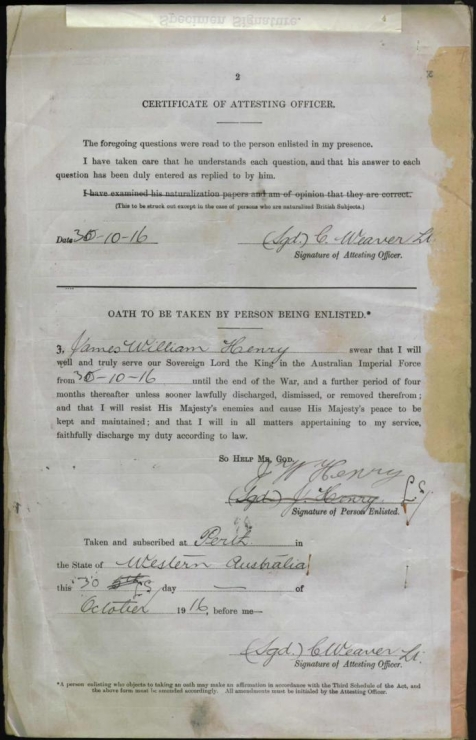 Specimen Signature.
2
CERTIFICATE OF ATTESTING OFFICER.
The foregoing questions were read to the person enlisted in my presence.
I have taken care that he understands each question, and that his answer to each
question has been duly entered as replied to by him.
I have examined his naturalization papers and am of opinion that they are correct.
(This to be struck out except in the case of persons who are naturalised British Subjects.)
Date 30-10-16 (Sgd.) C. Weaver Lt.
Signature of Attesting Officer.
OATH TO BE TAKEN BY PERSON BEING ENLISTED.*
I, James William Henry swear that I will
well and truly serve our Sovereign Lord the King in the Australian Imperial Force
from 30-10-16 until the end of the War, and a further period of four
months thereafter unless sooner lawfully discharged, dismissed, or removed therefrom;
and that I will resist His Majesty's enemies and cause His Majesty's peace to be
kept and maintained; and that I will in all matters appertaining to my service,
faithfully discharge my duty according to law.
SO HELP ME, GOD.
J W Henry
(Sgd.) J. Henry.
Signature of Person Enlisted.
Taken and subscribed at Perth in
the State of Western Australia
this 30 day — of
October 1916, before me—
(Sgd.) C Weaver Lt.
Signature of Attesting Officer.
*A person enlisting who objects to taking an oath may make an affirmation in accordance with the Third Schedule of the Act, and
the above form must be amended accordingly. All amendments must be initialed by the Attesting Officer.